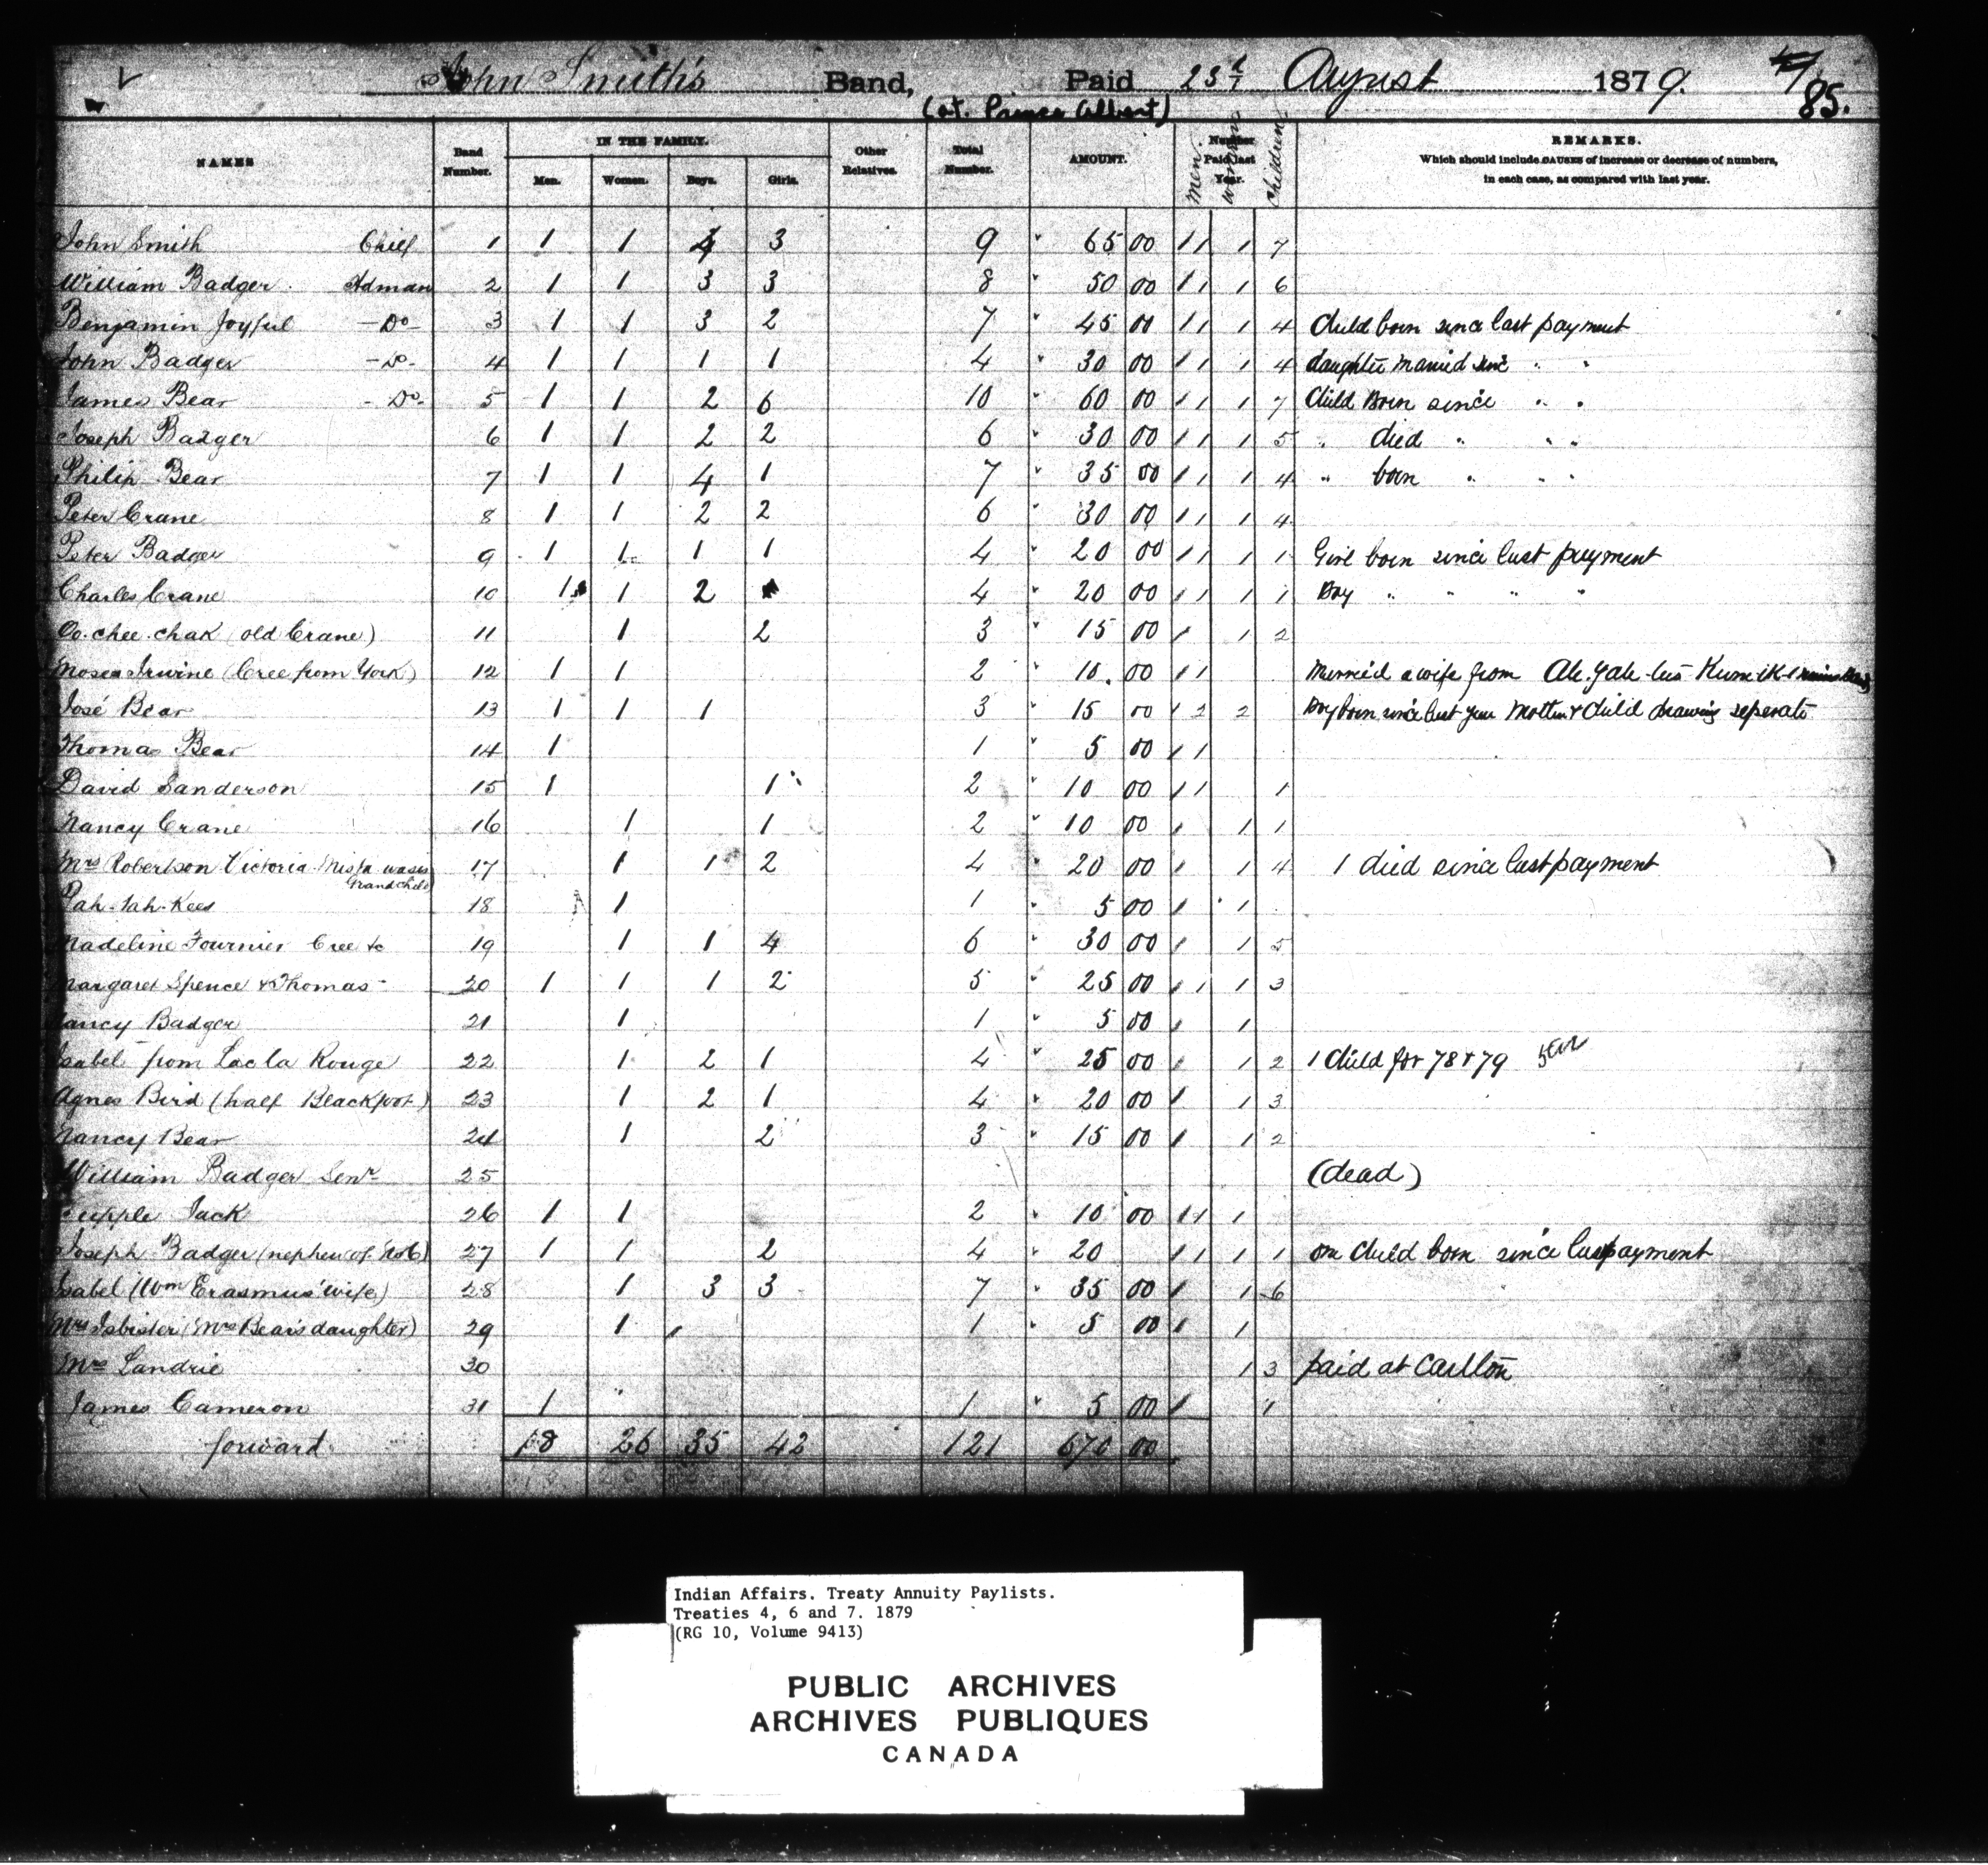 John Smith's Band, Paid 23d August 1879. 85.
(at. Prince Albert)
NAMES Band Number. IN THE FAMILY. Men. Women. Boys. Girls. Other Relatives. Total Number. AMOUNT. Number Paid last Year. Men. Women Children REMARKS.
Which should include CAUSES of increase or decrease of numbers,
in each case, as compared with last year.
John Smith Chief 1 1 1 4 3 9 " 65 00 1 1 1 7
William Badger Hdman 2 1 1 3 3 8 " 50 00 1 1 1 6
Benjamin Joyful -Do- 3 1 1 3 2 7 " 45 00 1 1 1 4 Child born since last payment
John Badger -Do- 4 1 1 1 1 4 " 30 00 1 1 1 4 daughter married since " "
James Bear -Do- 5 1 1 2 6 10 " 60 00 1 1 1 7 Child Born since " "
Joseph Badger 6 1 1 2 2 6 " 30 00 1 1 1 5 " died " " "
Philip Bear 7 1 1 4 1 7 " 35 00 1 1 1 4 " born " " "
Peter Crane 8 1 1 2 2 6 " 30 00 1 1 1 4
Peter Badger 9 1 1 1 1 4 " 20 00 1 1 1 1 Girl born since last payment
Charles Crane 10 1 1 2 4 " 20 00 1 1 1 1 Boy " " " "
Oo.chee.chak (old Crane) 11 1 2 3 " 15 00 1 1 2
Moses Irwine (Cree from York) 12 1 1 2 " 10.00 1 1 Married a wife from
José Bear 13 1 1 1 3 " 15 00 1 2 2 Boy born since last year Mother & Child drawing seperate
Thomas Bear 14 1 1 " 5 00 1 1
David Sanderson 15 1 1 2 " 10 00 1 1 1
Nancy Crane 16 1 1 2 " 10 00 1 1 1
Mrs Robertson Victoria Mista wasis 17 1 1 2 4 " 20 00 1 1 4 1 died since last payment
Grandchild
Pah-tah-Kees 18 1 1 " 5 00 1 1
Madeline Fournier Cree &c 19 1 1 4 6 " 30 00 1 1 5
Margaret Spence & Thomas- 20 1 1 1 2 5 " 25 00 1 1 1 3
Nancy Badger 21 1 1 " 5 00 1 1
Isabel from Lac la Rouge 22 1 2 1 4 " 25 00 1 1 2 1 Child for 78 & 79
Agnes Bird (half Blackfoot) 23 1 2 1 4 " 20 00 1 1 3
Nancy Bear 24 1 2 3 " 15 00 1 1 2
William Badger Senr 25 (dead)
Cripple Jack 26 1 1 2 " 10 00 1 1 1
Joseph Badger (nephew of No 6) 27 1 1 2 4 " 20 1 1 1 1 one child born since last payment
Isabel (Wm Erasmus' wife) 28 1 3 3 7 " 35 00 1 1 6
Mrs Isbister (Mrs Bear's daughter) 29 1 1 " 5 00 1 1
Mrs Landrie 30 1 3 paid at Carlton
James Cameron 31 1 1 " 5 00 1 1
forward 18 26 35 42 121 670 00
Indian Affairs. Treaty Annuity Paylists.
Treaties 4, 6 and 7. 1879
(RG 10, Volume 9413)
PUBLIC ARCHIVES
ARCHIVES PUBLIQUES
CANADA